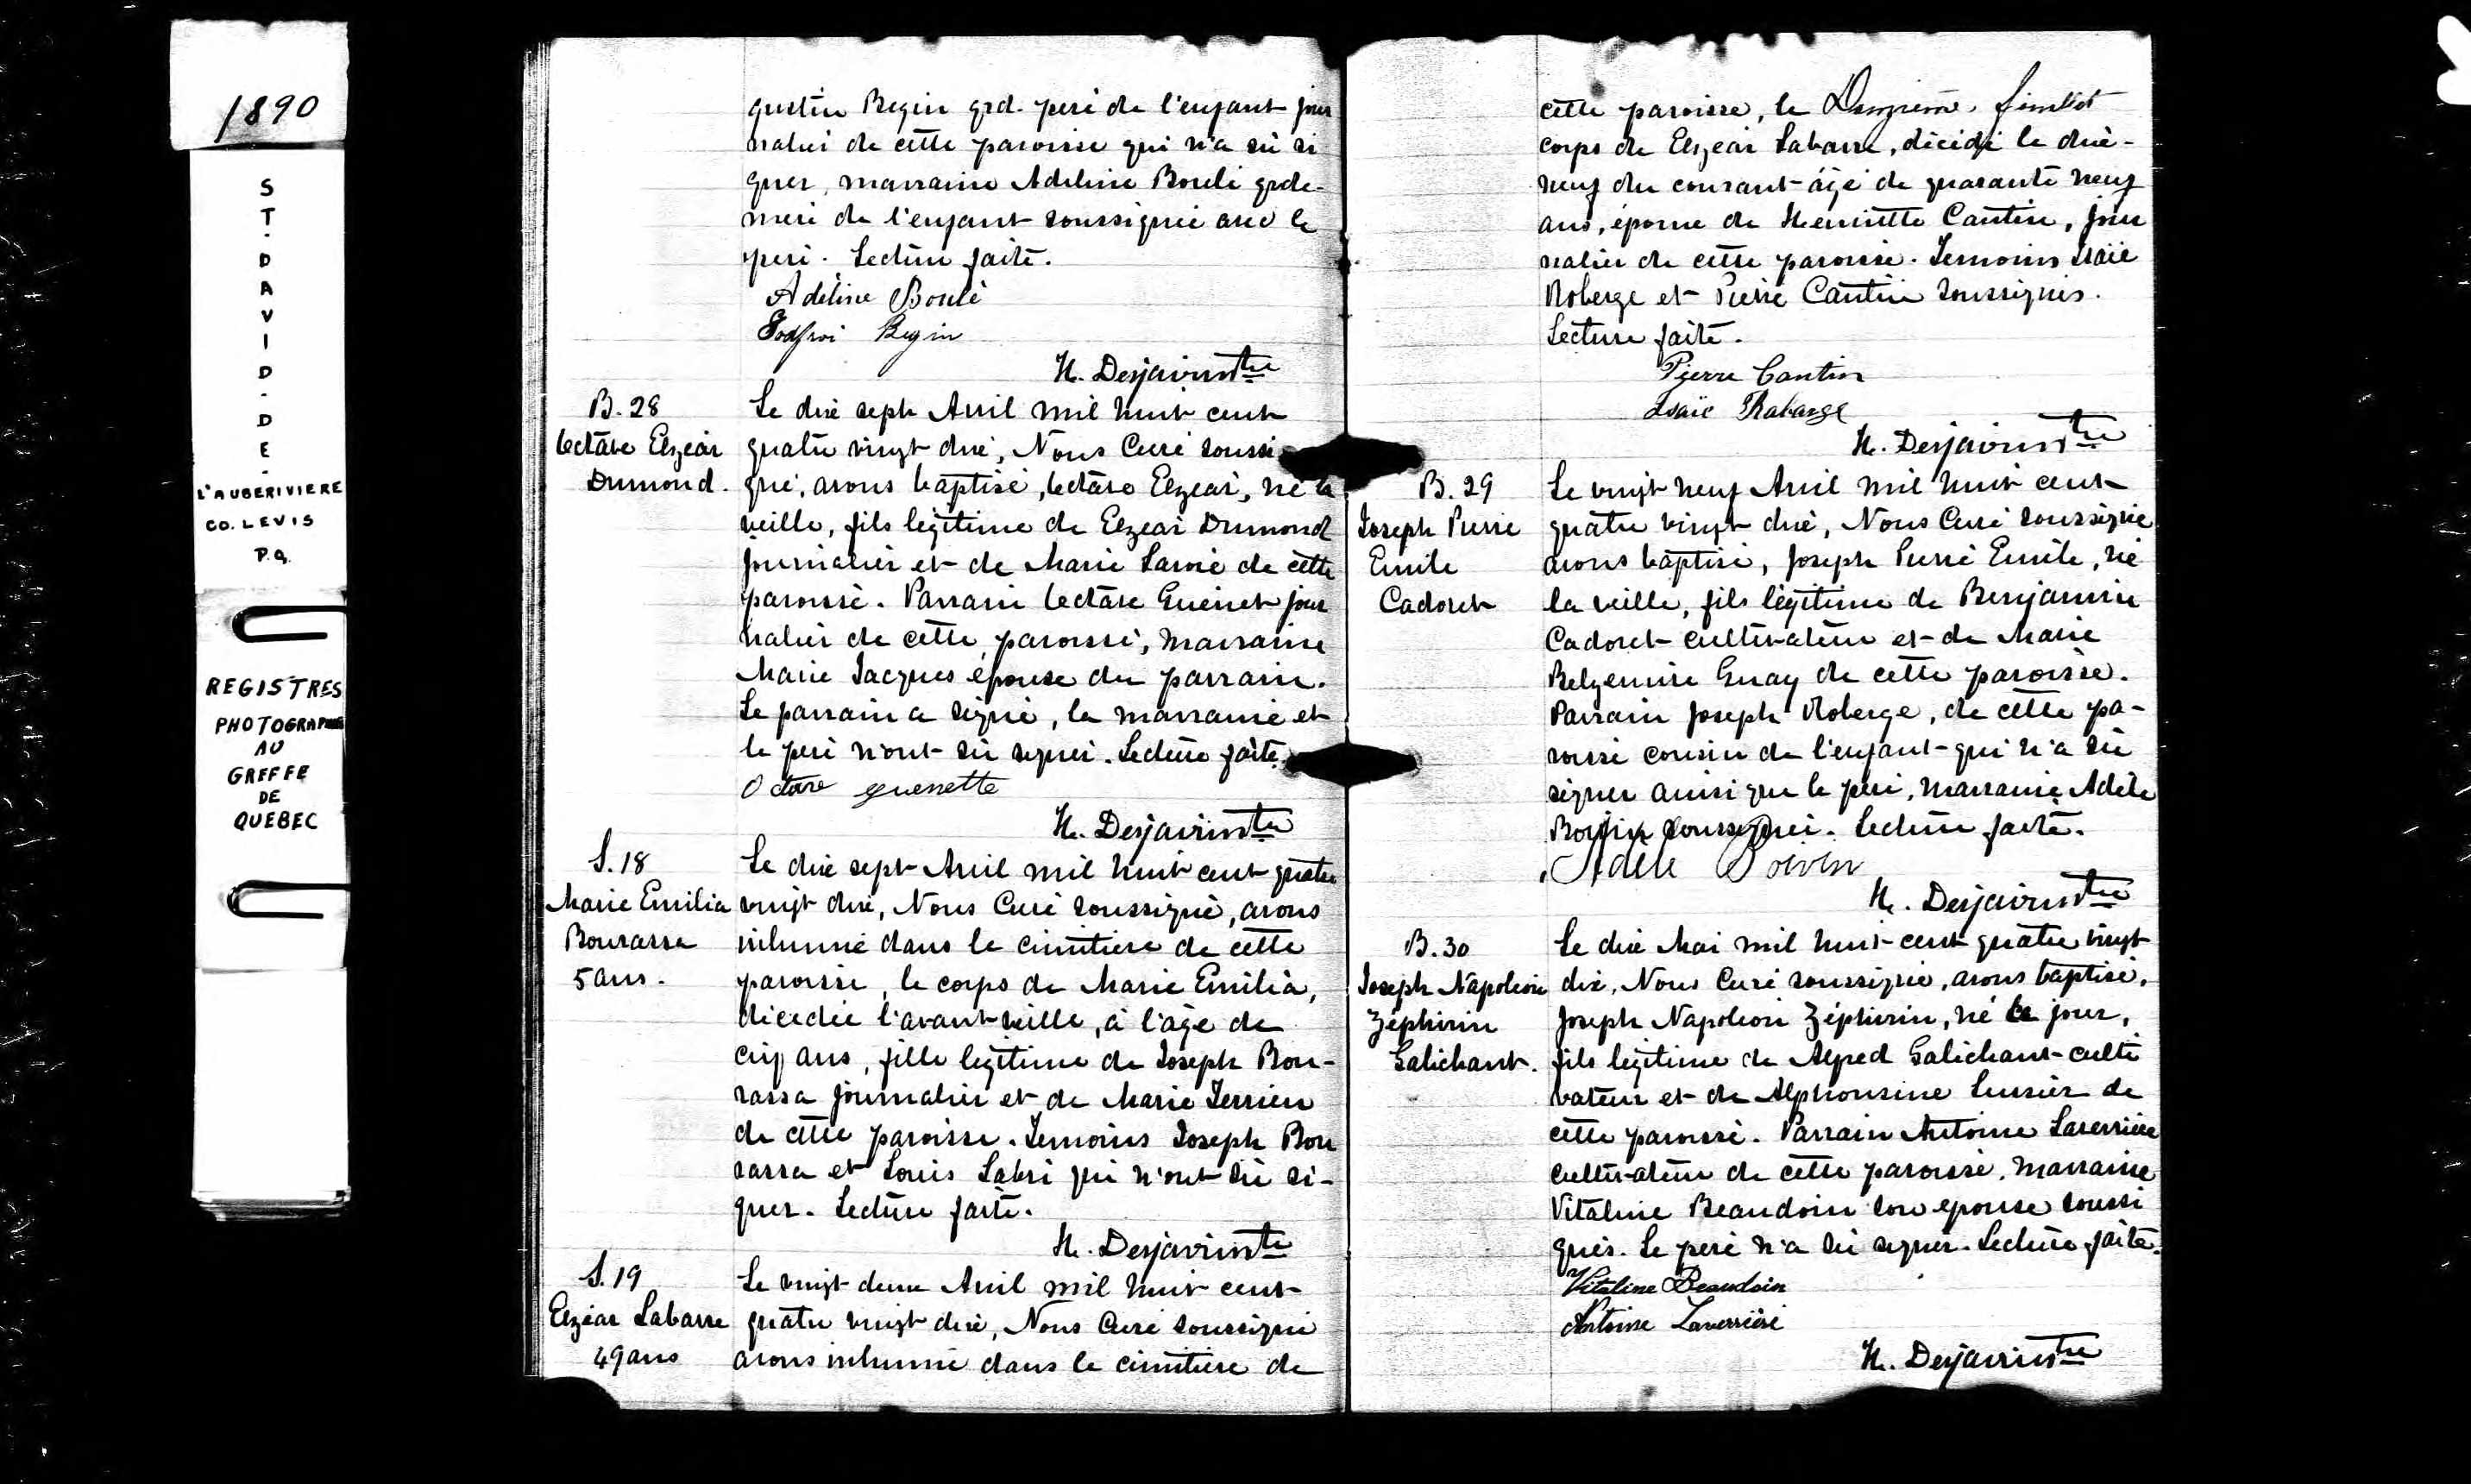 1890
ST. DAVID-DE-
L'AUBERIVIERE
CO. LEVIS
P.Q.
REGISTRES
PHOTOGRAPHIÉS
AU
GREFFE
DE
QUEBEC
gustin Begin grd. père de l'enfant jour
nalier de cette paroisse qui n'a su si
gner, marraine Adeline Boulé grde-
mère de l'enfant soussignée avec le
père. Lecture faite.
Adéline Boulé
Godfroi Begin
H. Desjardins Ptre
B. 28
Octave Elzéar
Dumond.
Le dix sept Avril mil huit cent
quatre vingt dix, Nous Curé soussi
gné, avons baptisé, Octave Elzéar, né la
veille, fils légitime de Elzéar Dumond
journalier et de Marie Lavoie de cette
paroisse. Parrain Octave Guénet jour
nalier de cette paroisse, marraine
Marie Jacques épouse du parrain.
Le parrain a signé, la marraine et
le père n'ont su signer. Lecture faite.
Octave guenette
H. Desjardins Ptre
S. 18
Marie Emilia
Bourassa
5 ans.
Le dix sept Avril mil huit cent quatre
vingt dix, Nous Curé soussigné, avons
inhumé dans le cimetière de cette
paroisse, le corps de Marie Emilia,
décédée l'avant-veille, à l'âge de
cinq ans, fille légitime de Joseph Bou-
rassa journalier et de Marie Terrien
de cette paroisse. Témoins Joseph Bou
rassa et Louis Labri qui n'ont su si-
gner. Lecture faite.
H. Desjardins Ptre
S. 19
Elzéar Labarre
49 ans
Le vingt deux Avril mil huit cent
quatre vingt dix, Nous Curé soussigné
avons inhumé dans le cimetière de
cette paroisse, le
corps de Elzéar Labarre, décédé le dix-
neuf du courant âgé de quarante neuf
ans, époux de Henriette Cantin, jour
nalier de cette paroisse. Témoins Isaïe
Roberge et Pierre Cantin soussignés.
Lecture faite.
Pierre Cantin
Isaïe Rabarge
H. Desjardins Ptre
B. 29
Joseph Pierre
Emile
Cadoret
Le vingt neuf Avril mil huit cent
quatre vingt dix, Nous Curé soussigné
avons baptisé, Joseph Pierre Emile, né
la veille, fils légitime de Benjamin
Cadoret cultivateur et de Marie
Belzemire Guay de cette paroisse.
Parrain Joseph Roberge, de cette pa-
roisse cousin de l'enfant qui n'a su
signer ainsi que le père, marraine Adèle
Boivin soussignée. Lecture faite.
Adele Boivin
H. Desjardins Ptre
B. 30
Joseph Napoléon
Zéphirin
Galichant.
Le dix Mai mil huit cent quatre vingt
dix, Nous Curé soussigné, avons baptisé,
Joseph Napoléon Zéphirin, né ce jour,
fils légitime de Alfred Galichant culti
vateur et de Alphonsine Lussier de
cette paroisse. Parrain Antoine Laverrière
cultivateur de cette paroisse, marraine
Vitaline Beaudoin son épouse soussi
gnés. Le père n'a su signer. Lecture faite.
Vitaline Beaudoin
Antoine Laverrière
H. Desjardins Ptre